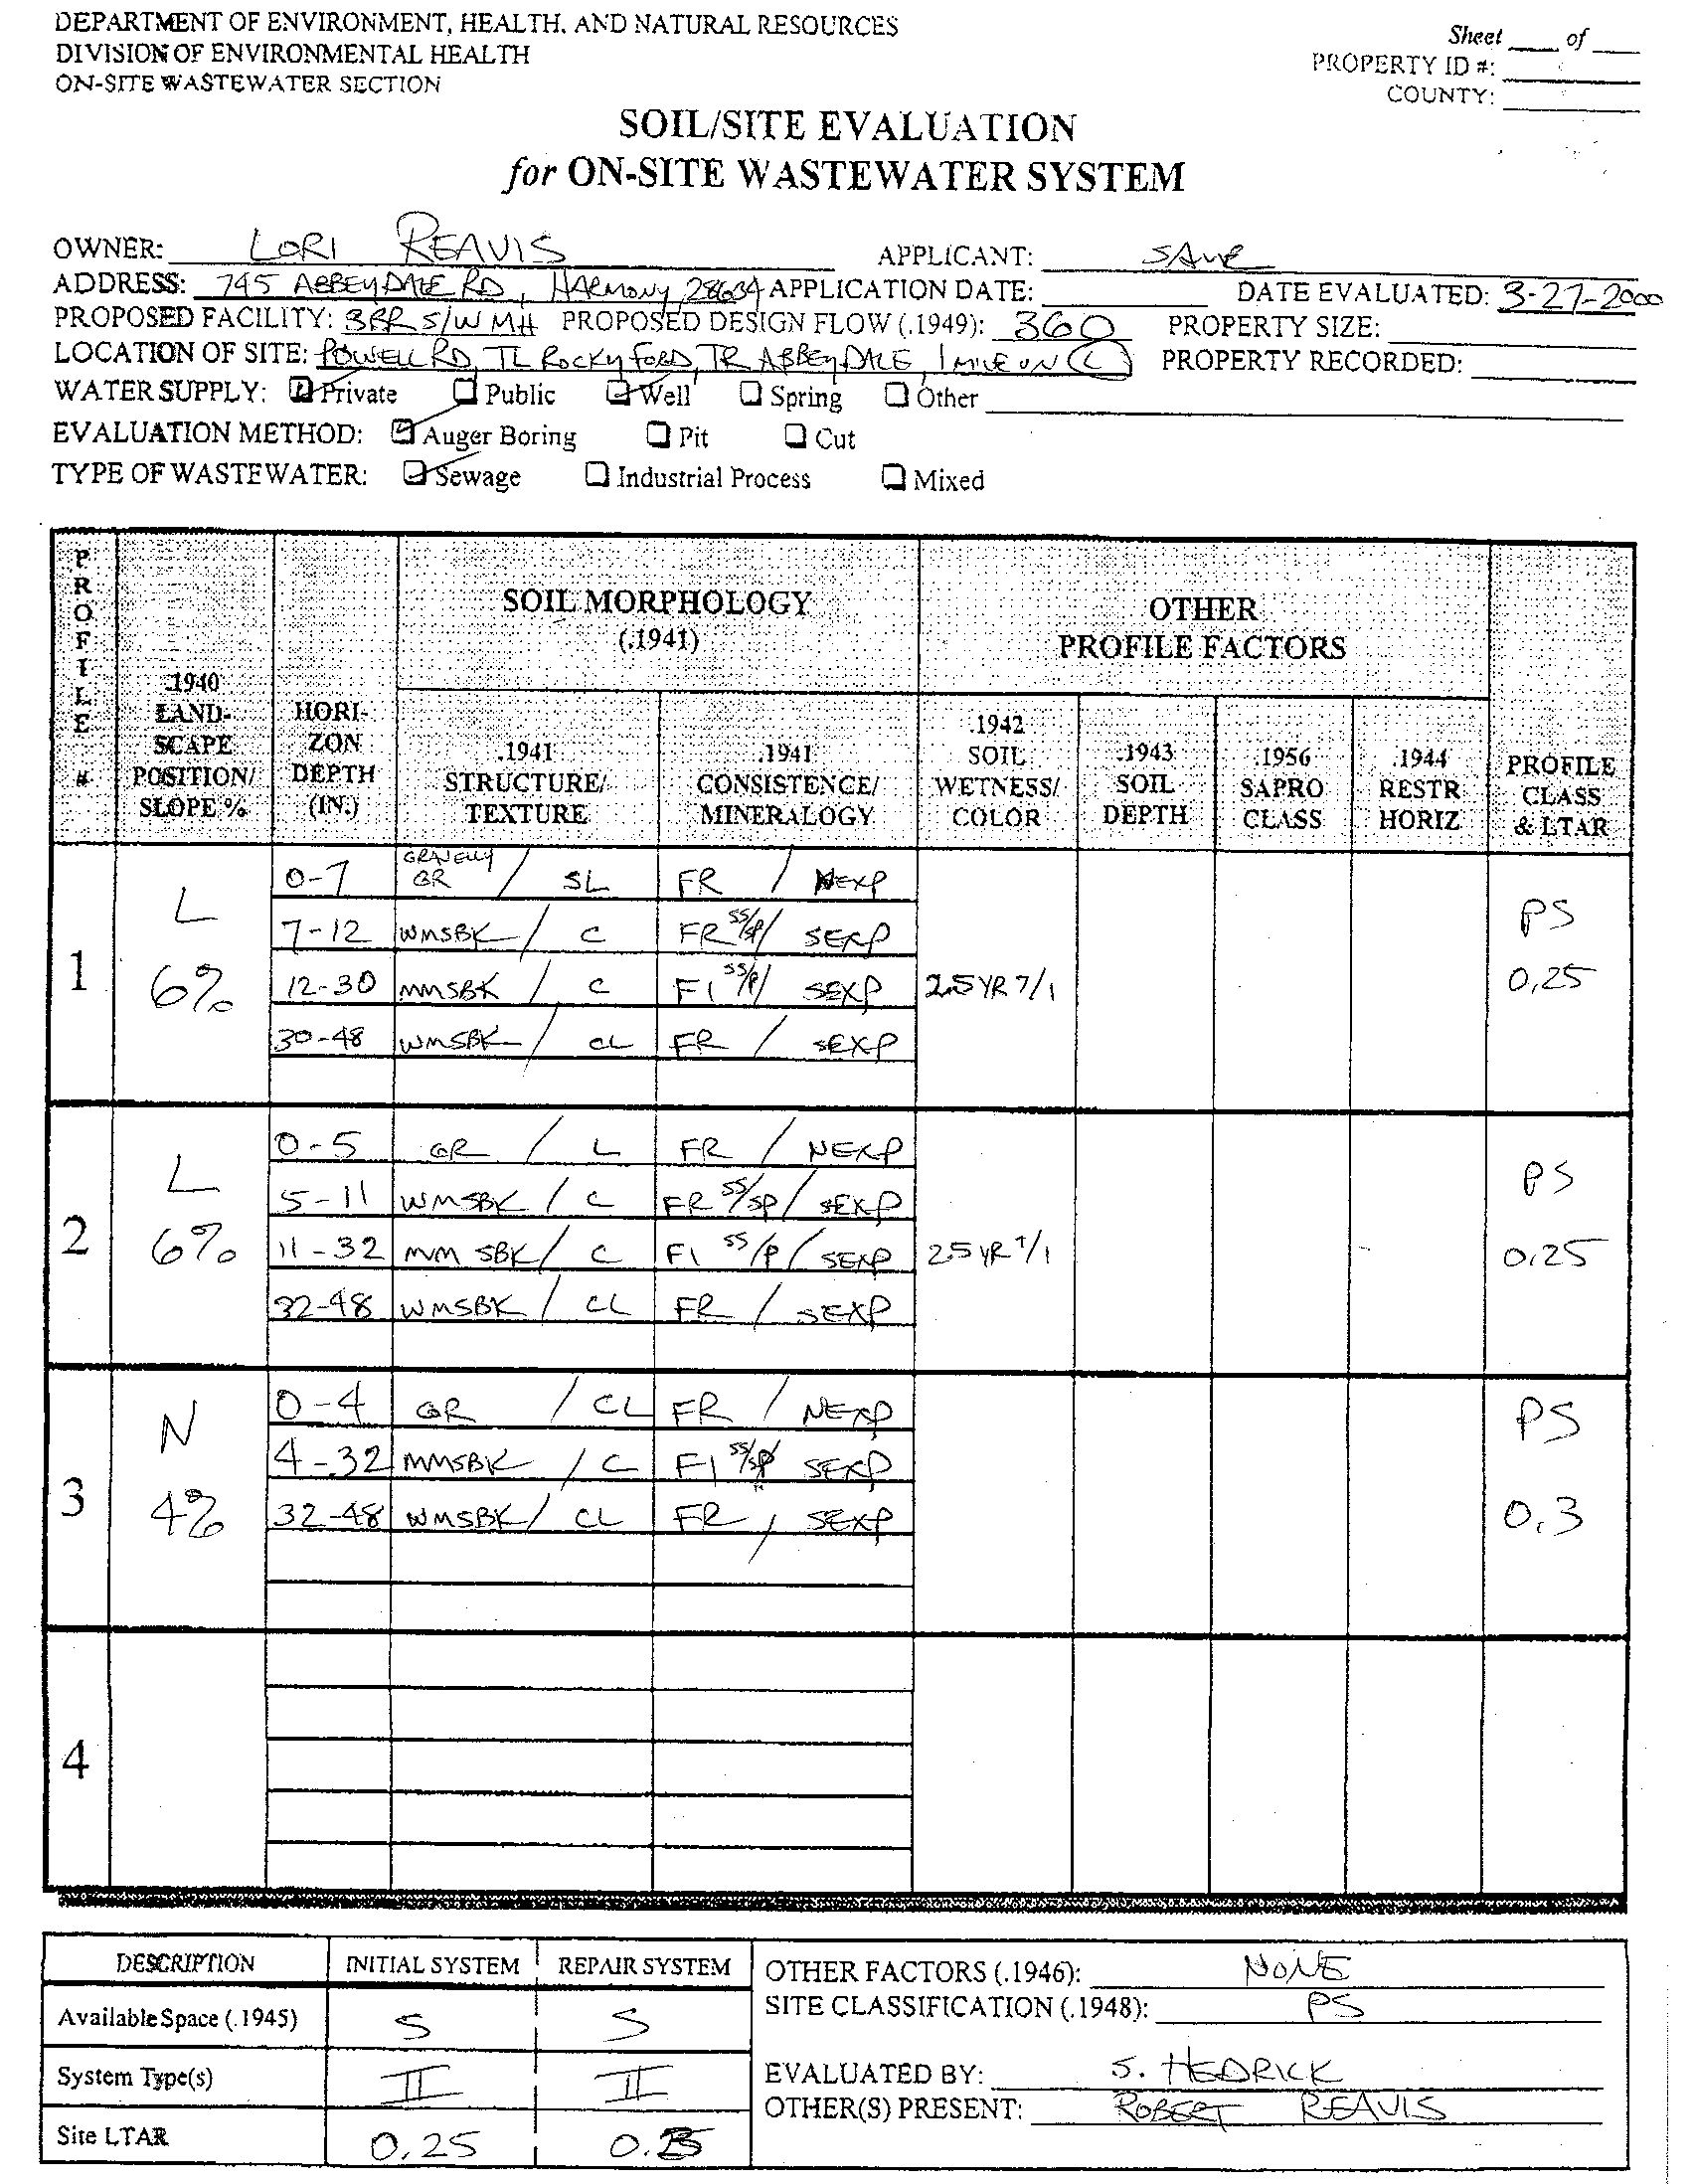 DEPARTMENT OF ENVIRONMENT, HEALTH, AND NATURAL RESOURCES
DIVISION OF ENVIRONMENTAL HEALTH
ON-SITE WASTEWATER SECTION
Sheet ____ of ____
PROPERTY ID #:
COUNTY:
SOIL/SITE EVALUATION
for ON-SITE WASTEWATER SYSTEM
OWNER: LORI REAVIS APPLICANT: SAME
ADDRESS: 745 ABBEYDALE RD, HARMONY 28634 APPLICATION DATE: DATE EVALUATED: 3-27-2000
PROPOSED FACILITY: 3BR S/W MH PROPOSED DESIGN FLOW (.1949): 360 PROPERTY SIZE:
LOCATION OF SITE: POWELL RD, TL ROCKY FORD, TR ABBEYDALE, 1 MILE ON L PROPERTY RECORDED:
WATER SUPPLY: ☑ Private ☐ Public ☑ Well ☐ Spring ☐ Other
EVALUATION METHOD: ☑ Auger Boring ☐ Pit ☐ Cut
TYPE OF WASTEWATER: ☑ Sewage ☐ Industrial Process ☐ Mixed
PROFILE #
.1940 LAND-SCAPE POSITION/ SLOPE %
HORI-ZON DEPTH (IN.)
SOIL MORPHOLOGY (.1941)
.1941 STRUCTURE/ TEXTURE
.1941 CONSISTENCE/ MINERALOGY
OTHER PROFILE FACTORS
.1942 SOIL WETNESS/ COLOR
.1943 SOIL DEPTH
.1956 SAPRO CLASS
.1944 RESTR HORIZ
PROFILE CLASS & LTAR
1 L 6%
0-7 GRAVELLY GR / SL FR / NEXP
7-12 WMSBK / C FR SS/SP / SEXP
12-30 MMSBK / C FI SS/P / SEXP 2.5 YR 7/1
30-48 WMSBK / CL FR / SEXP
PS 0.25
2 L 6%
0-5 GR / L FR / NEXP
5-11 WMSBK / C FR SS/SP / SEXP
11-32 MM SBK / C FI SS/P / SEXP 2.5 YR 7/1
32-48 WMSBK / CL FR / SEXP
PS 0.25
3 N 4%
0-4 GR / CL FR / NEXP
4-32 MMSBK / C FI SS/SP SEXP
32-48 WMSBK / CL FR / SEXP
PS 0.3
4
DESCRIPTION INITIAL SYSTEM REPAIR SYSTEM
Available Space (.1945) S S
System Type(s) II II
Site LTAR 0.25 0.
OTHER FACTORS (.1946): NONE
SITE CLASSIFICATION (.1948): PS
EVALUATED BY: S. HEDRICK
OTHER(S) PRESENT: ROBERT REAVIS